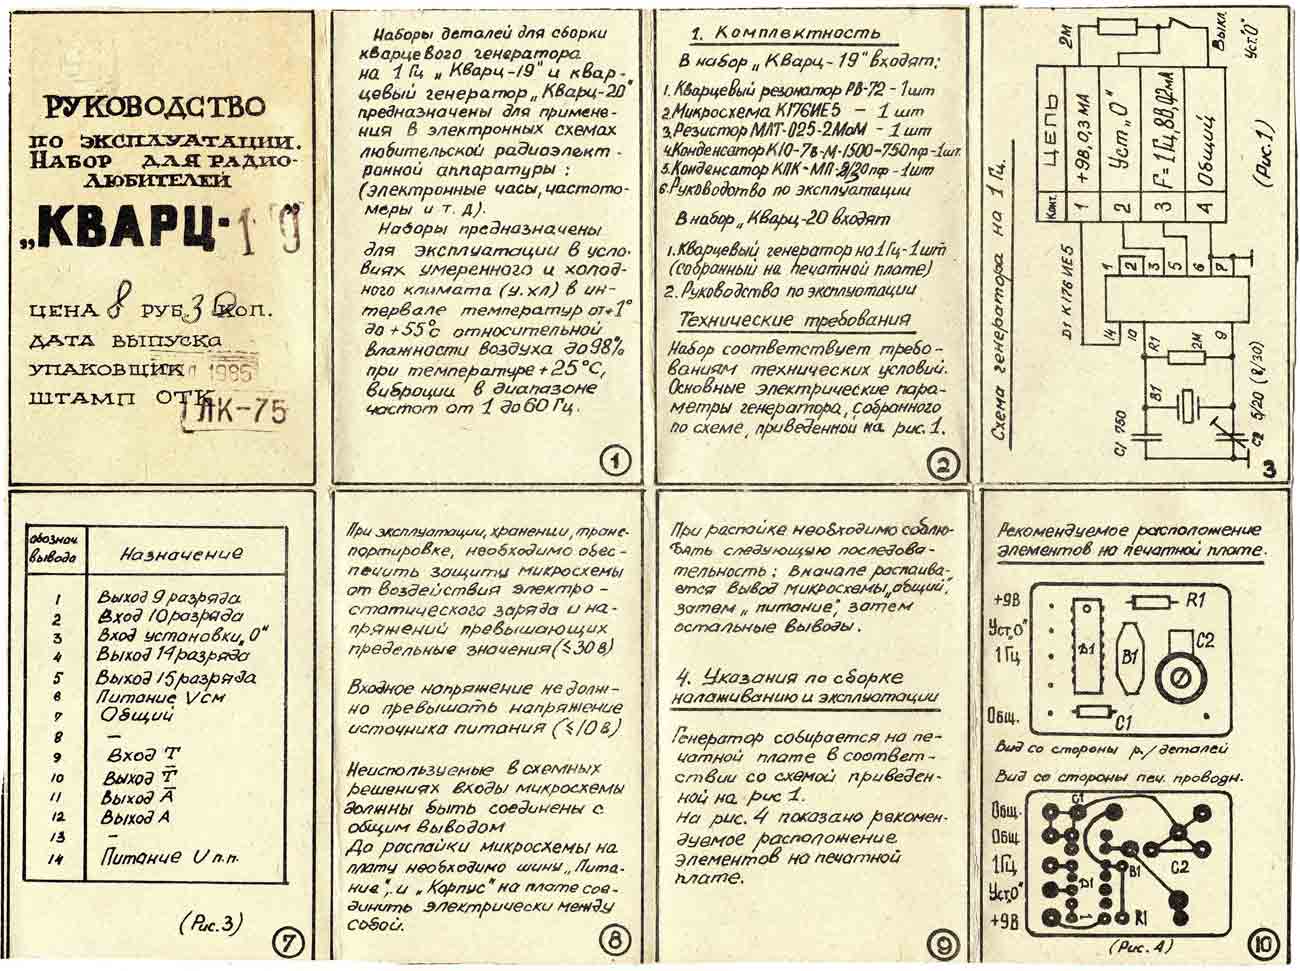 РУКОВОДСТВО
ПО ЭКСПЛУАТАЦИИ.
НАБОР ДЛЯ РАДИО-
ЛЮБИТЕЛЕЙ
„КВАРЦ-19"
ЦЕНА 8 РУБ. 30 КОП.
ДАТА ВЫПУСКА
УПАКОВЩИК 1985
ШТАМП ОТК
ЛК-75
Наборы деталей для сборки
кварцевого генератора
на 1 Гц „Кварц-19" и квар-
цевый генератор „Кварц-20"
предназначены для примене-
ния в электронных схемах
любительской радиоэлект-
ронной аппаратуры:
(электронные часы, частото-
меры и т. д).
Наборы предназначены
для эксплуатации в усло-
виях умеренного и холод-
ного климата (у.хл) в ин-
тервале температур от +1°
до +55°с относительной
влажности воздуха до 98%
при температуре +25°С,
вибрации в диапазоне
частот от 1 до 60 Гц.
1
1. Комплектность
В набор „Кварц-19" входят:
1. Кварцевый резонатор РВ-72 - 1 шт
2. Микросхема К176ИЕ5 - 1 шт
3. Резистор МЛТ-025-2МоМ - 1 шт
4. Конденсатор К10-7в-М-1500-750пф-1шт.
5. Конденсатор КПК-МП-8/30 пф-1шт
6. Руководство по эксплуатации
В набор „Кварц-20 входят
1. Кварцевый генератор на 1 Гц-1 шт
(собранный на печатной плате)
2. Руководство по эксплуатации
Технические требования
Набор соответствует требо-
ваниям технических условий.
Основные электрические пара-
метры генератора, собранного
по схеме, приведенной на рис. 1.
2
Схема генератора на 1 Гц.
Конт. ЦЕПЬ
1 +9В, 0,3 МА
2 Уст. „0"
3 F=1Гц, 8В, 0,2МА
4 Общий
2М
Выкл.
Уст.„0"
(Рис. 1)
D1 К176ИЕ5
1
2
3
5
6
7
14
10
9
R1
2М
В1
С1 750
С2 5/20 (8/30)
3
обознач. вывода Назначение
1 Выход 9 разряда
2 Вход 10 разряда
3 Вход установки „0"
4 Выход 14 разряда
5 Выход 15 разряда
6 Питание Uсм
7 Общий
8 —
9 Вход Т
10 Выход Т̅
11 Выход А̅
12 Выход А
13 —
14 Питание U п.п.
(Рис. 3)
7
При эксплуатации, хранении, транс-
портировке, необходимо обес-
печить защиту микросхемы
от воздействия электро-
статического заряда и на-
пряжений превышающих
предельные значения (≤30 в)
Входное напряжение не долж-
но превышать напряжение
источника питания (≤10 в)
Неиспользуемые в схемных
решениях входы микросхемы
должны быть соединены с
общим выводом
До распайки микросхемы на
плату необходимо шину „Пита-
ние", и „Корпус" на плате сое-
динить электрически между
собой.
8
При распайке необходимо соблю-
дать следующую последова-
тельность: вначале распаива-
ется вывод микросхемы „общий",
затем „питание", затем
остальные выводы.
4. Указания по сборке
налаживанию и эксплуатации
Генератор собирается на пе-
чатной плате в соответ-
ствии со схемой приведен-
ной на рис 1.
На рис. 4 показано рекомен-
дуемое расположение
элементов на печатной
плате.
9
Рекомендуемое расположение
элементов на печатной плате.
+9В
Уст.„0"
1 Гц
Общ.
D1
В1
R1
С2
С1
Вид со стороны р./деталей
Вид со стороны печ. проводн.
Общ.
Общ.
1Гц
Уст.„0"
+9В
С1
D1
В1
R1
С2
1
(Рис. 4)
10